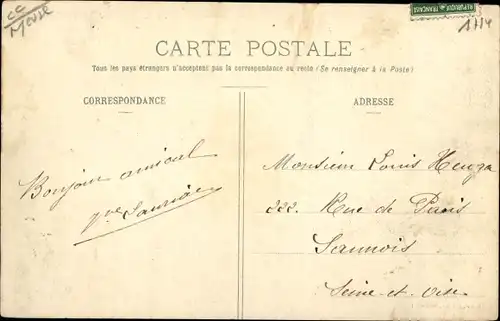 CC
Meuse
REPUBLIQUE FRANCAISE
CARTE POSTALE
Tous les pays étrangers n'acceptent pas la correspondance au recto (Se renseigner à la Poste)
CORRESPONDANCE
ADRESSE
Bonjour amical
Monsieur Louis
222. Rue de Paris
Sannois
Seine-et-Oise